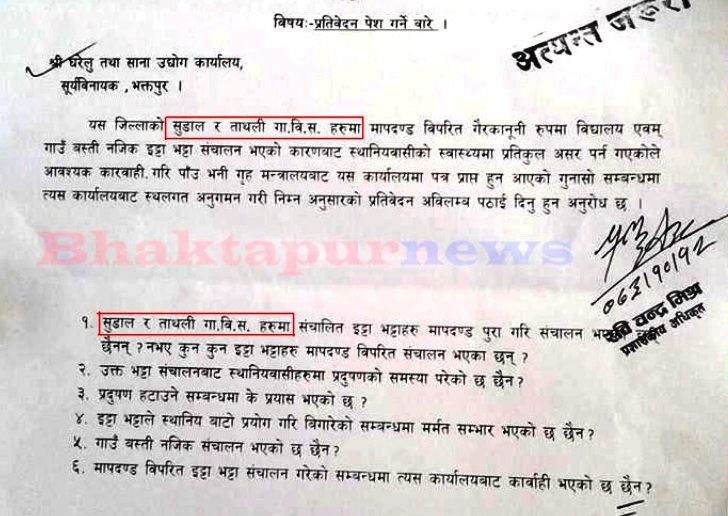 विषयः-प्रतिवेदन पेश गर्ने बारे ।
अत्यन्त जरुरी
श्री घरेलु तथा साना उद्योग कार्यालय,
सूर्यबिनायक ,भक्तपुर ।
यस जिल्लाको सुडाल र ताथली गा.वि.स. हरुमा मापदण्ड विपरित गैरकानूनी रुपमा विद्यालय एवम्
गाउँ बस्ती नजिक इट्टा भट्टा संचालन भएको कारणबाट स्थानियवासीको स्वास्थ्यमा प्रतिकुल असर पर्न गएकोले
आवश्यक कारवाही.गरि पाँउ भनी गृह मन्त्रालयबाट यस कार्यालयमा पत्र प्राप्त हुन आएको गुनासो सम्बन्धमा
त्यस कार्यालयबाट स्थलगत अनुगमन गरी निम्न अनुसारको प्रतिवेदन अविलम्ब पठाई दिनु हुन अनुरोध छ ।
Bhaktapurnews
०६३।१०।१२
चन्द्र मिश्र
प्रशासकीय अधिकृत
१. सुडाल र ताथली गा.वि.स. हरुमा संचालित इट्टा भट्टाहरु मापदण्ड पुरा गरि संचालन
छैनन् ? नभए कुन कुन इट्टा भट्टाहरु मापदण्ड विपरित संचालन भएका छन् ?
२. उक्त भट्टा संचालनबाट स्थानियवासीहरुमा प्रदुषणको समस्या परेको छ छैन ?
३. प्रदुषण हटाउने सम्बन्धमा के प्रयास भएको छ ?
४. इट्टा भट्टाले स्थानिय बाटो प्रयोग गरि बिगारेको सम्बन्धमा मर्मत सम्भार भएको छ छैन ?
५. गाउँ बस्ती नजिक संचालन भएको छ छैन ?
६. मापदण्ड विपरित इट्टा भट्टा संचालन गरेको सम्बन्धमा त्यस कार्यालयबाट कार्वाही भएको छ छैन ?